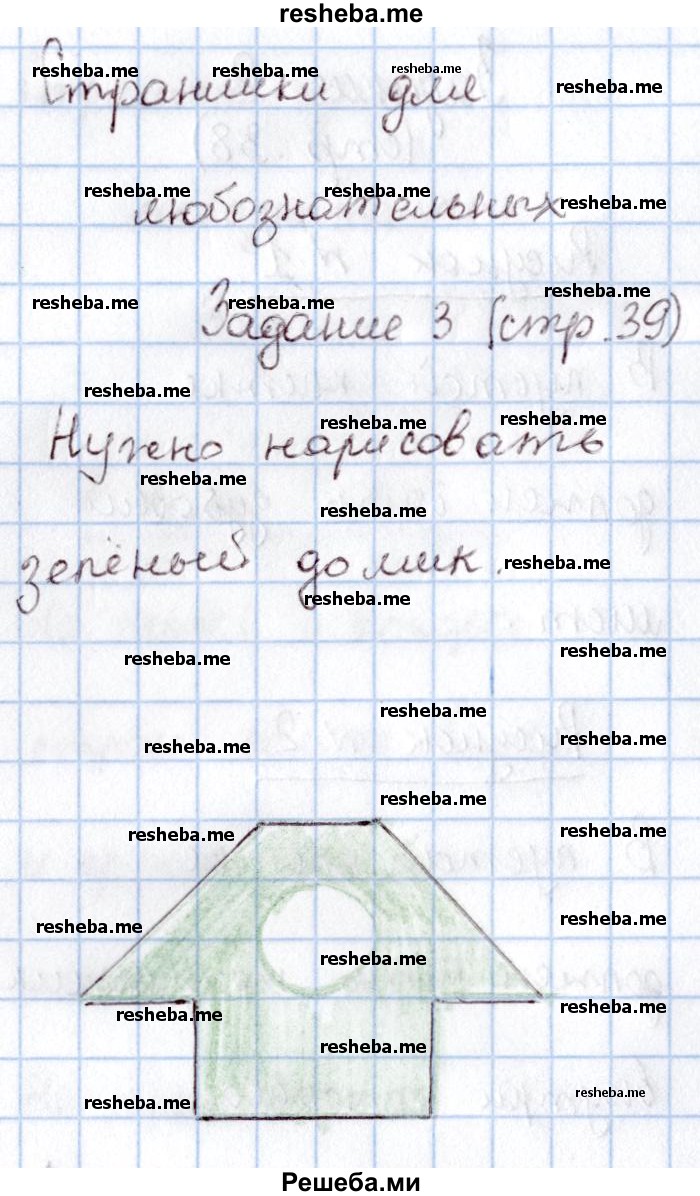 resheba.me
Странички для
любознательных
Задание 3 (стр. 39)
Нужно нарисовать
зелёный домик.
resheba.me resheba.me resheba.me resheba.me
resheba.me resheba.me resheba.me
resheba.me resheba.me resheba.me
resheba.me
resheba.me resheba.me
resheba.me
resheba.me
resheba.me
resheba.me
resheba.me resheba.me
resheba.me
resheba.me resheba.me
resheba.me
resheba.me resheba.me
resheba.me resheba.me
resheba.me
resheba.me resheba.me
resheba.me
resheba.me resheba.me
Решеба.ми